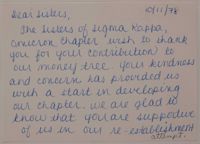 10/11/78
Dear Sisters,
The Sisters of Sigma Kappa,
Omicron Chapter wish to thank
you for your contribution to
our money tree. Your kindness
and concern has provided us
with a start in developing
our chapter. We are glad to
know that you are supportive
of us in our re-establishment
attempts.